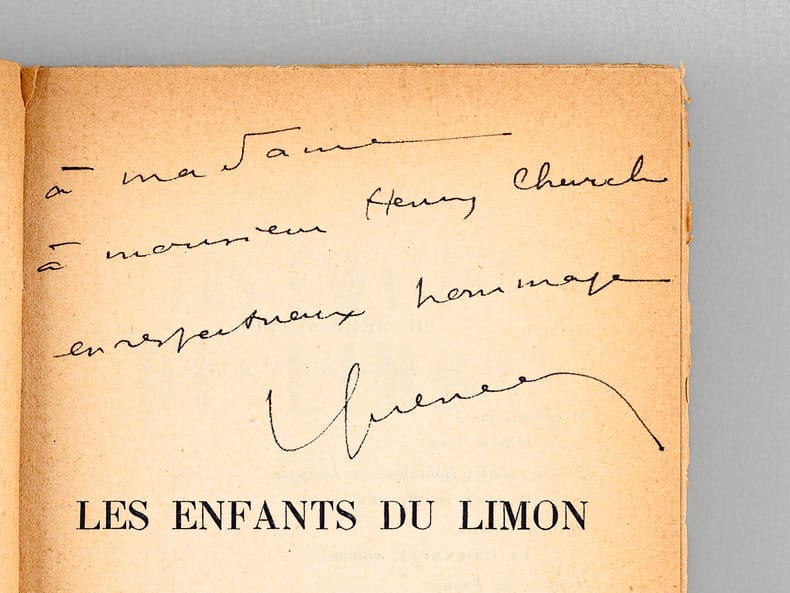 à madame
à monsieur Henry Church
en respectueux hommage
Queneau
LES ENFANTS DU LIMON